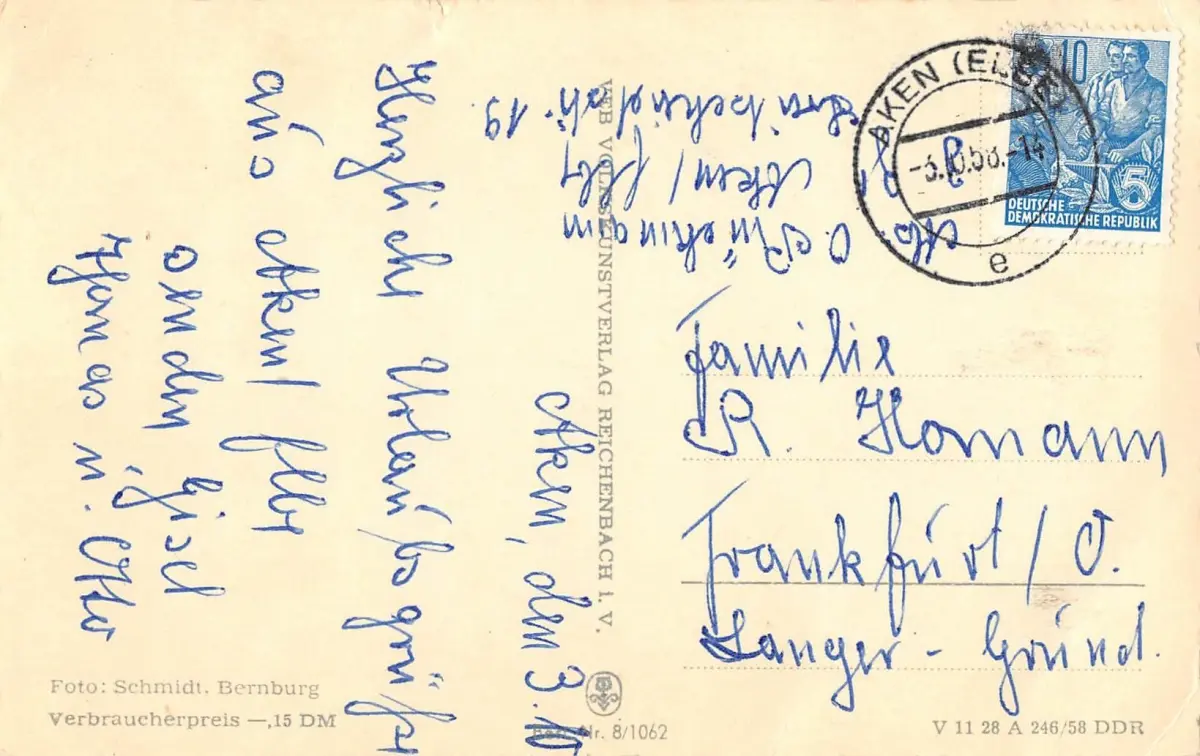 Aken, den 3.10
Herzliche Urlaubsgrüße
aus Aken/Elbe
senden Gisel
Thomas u. Otto
O. Brückmann
Aken/Elbe
19.
Familie
R. Homann
Frankfurt/O.
Langer-Grund.
AKEN (ELBE)
-3.10.58.-14
e
10
5
DEUTSCHE
DEMOKRATISCHE REPUBLIK
VEB VOLKSKUNSTVERLAG REICHENBACH i. V.
Foto: Schmidt, Bernburg
Verbraucherpreis —,15 DM
Best.-Nr. 8/1062
V 11 28 A 246/58 DDR